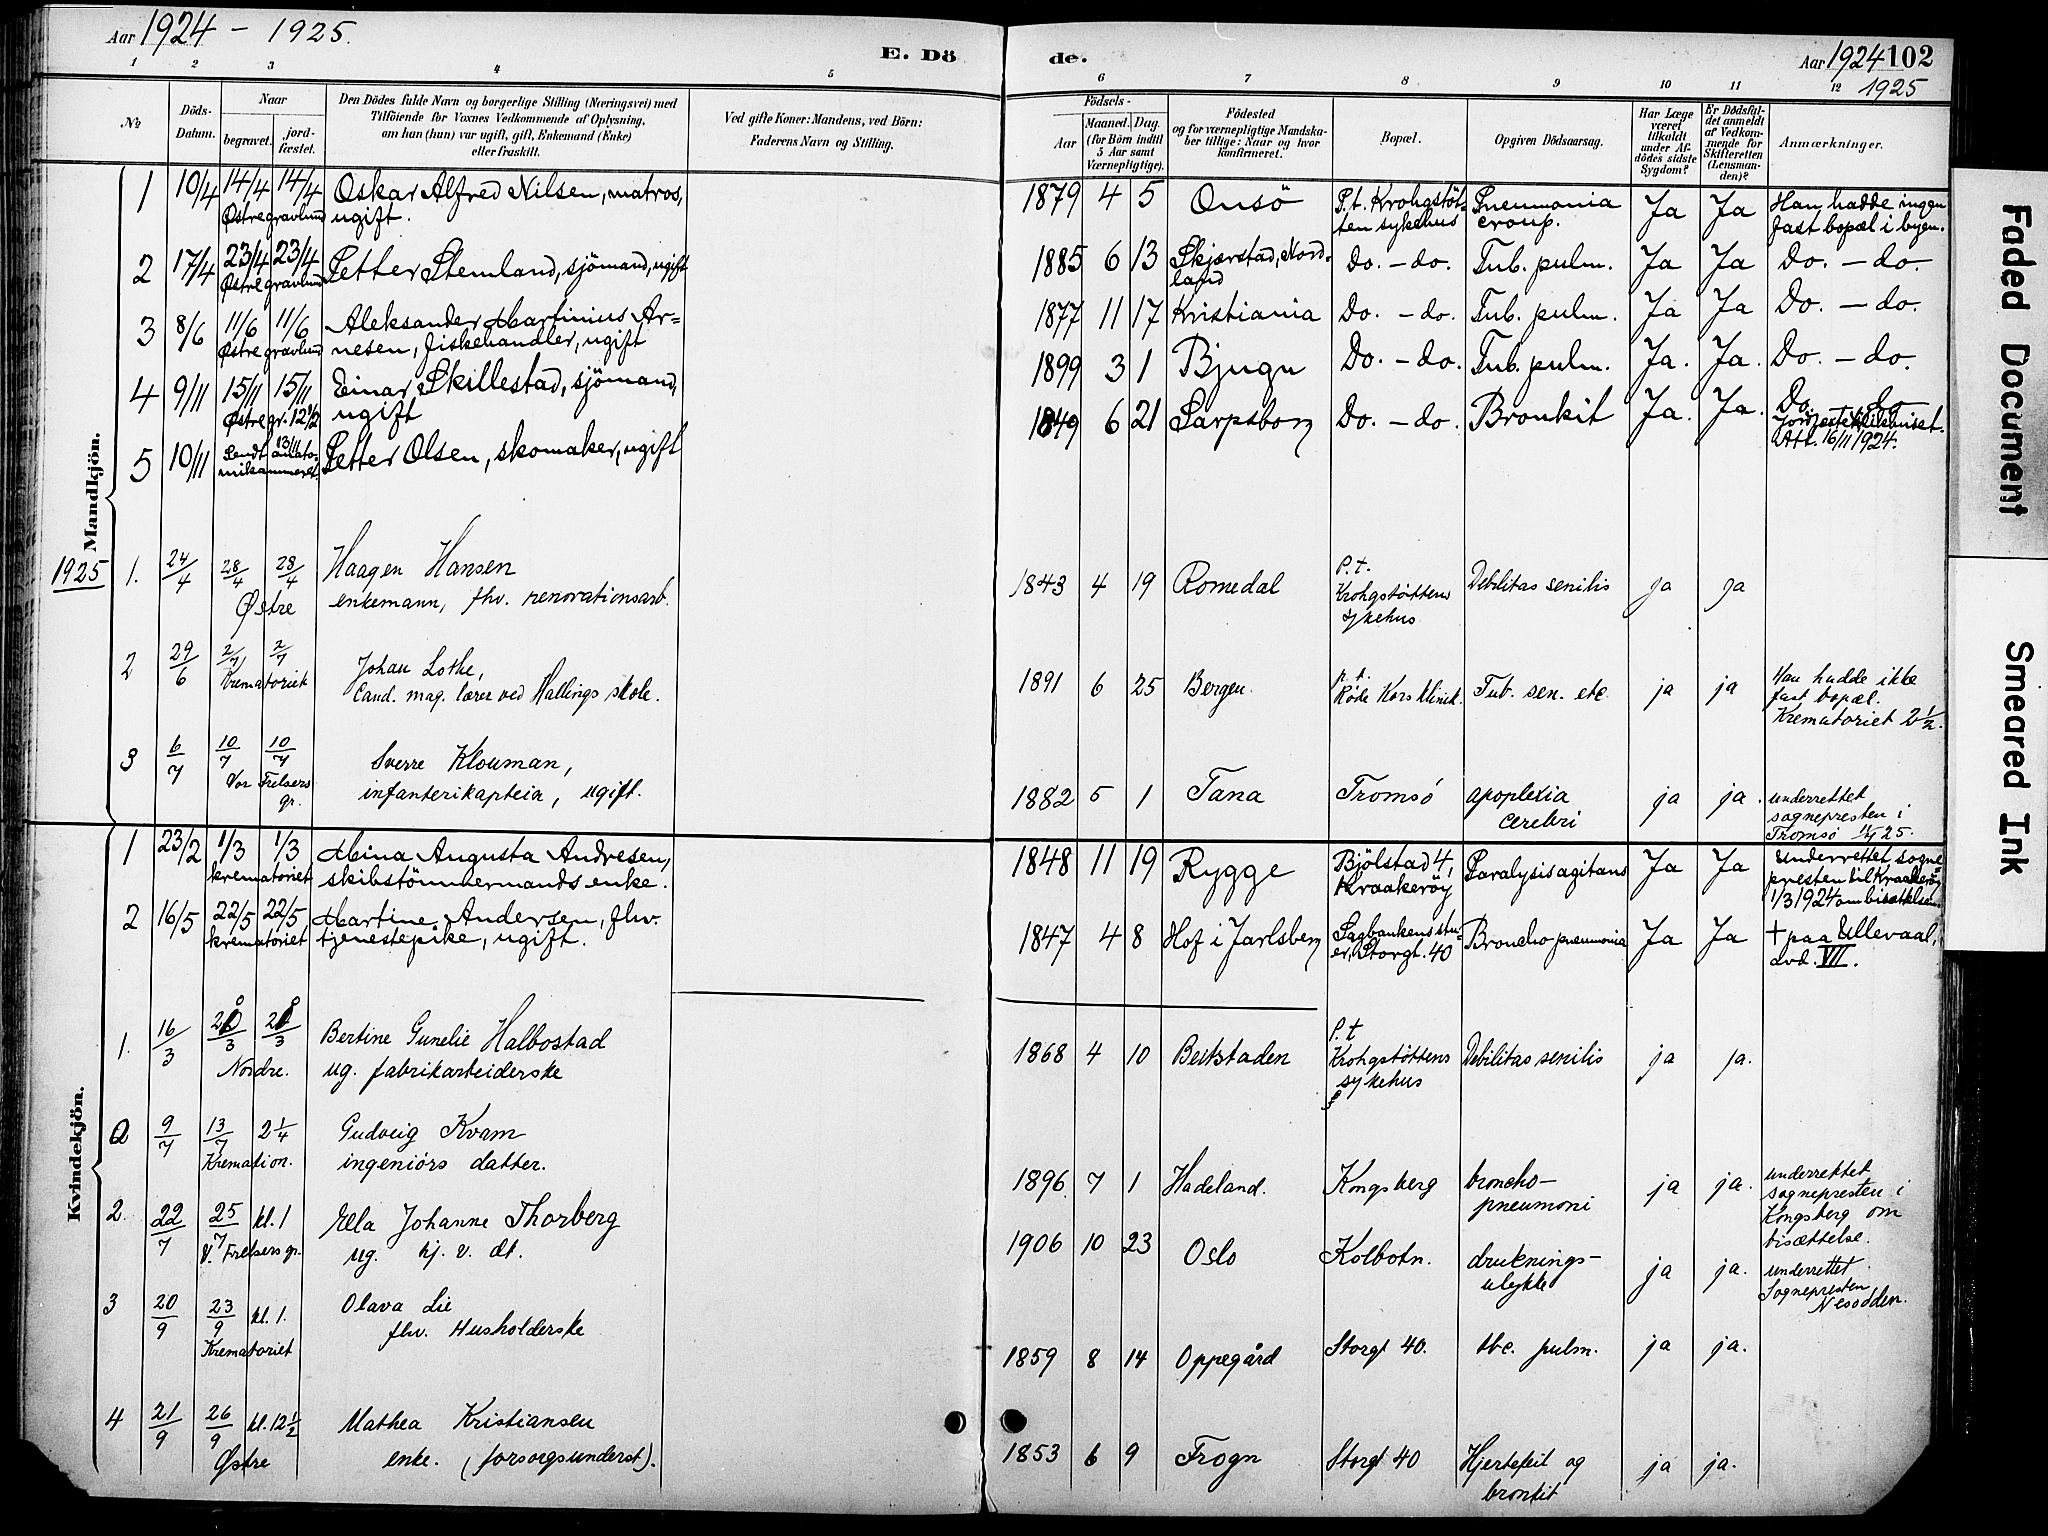 Aar 1924 - 1925.
E. Dö
1 2 3 4 5
№
Döds-
Datum.
Naar
begravet.
jord-
fæstet.
Den Dödes fulde Navn og borgerlige Stilling (Næringsvei) med
Tilföiende for Voxnes Vedkommende af Oplysning,
om han (hun) var ugift, gift, Enkemand (Enke)
eller fraskilt.
Ved gifte Koner: Mandens, ved Börn:
Faderens Navn og Stilling.
Mandkjön.
1 10/4 14/4 14/4 Oskar Alfred Nilsen, matros,
Østre gravlund ugift.
2 17/4 23/4 23/4 Petter Stemland, sjömand, ugift
Østre gravlund
3 8/6 11/6 11/6 Aleksander Martinius Ar=
Østre gravlund nesen, fiskehandler, ugift
4 9/11 15/11 15/11 Einar Skillestad, sjömand,
Østre gr. 12 1/2 ugift
5 10/11 Sendt 13/11 anato-
mikammeret. Petter Olsen, skomaker, ugift
1925 1. 24/4 28/4 28/4 Haagen Hansen
Østre enkemann, fhv. renovationsarb.
2 29/6 2/7 2/7 Johan Lothe,
Krematoriet Cand. mag. lærer ved Hallings skole.
3 6/7 10/7 10/7 Sverre Klouman,
Vor Frelsers infanterikaptein, ugift.
gr.
Kvindekjön.
1 23/2 1/3 1/3 Mina Augusta Andresen,
krematoriet skibstömmermands enke.
2 16/5 22/5 22/5 Martine Andersen, fhv.
krematoriet tjenestepike, ugift.
1. 16/3 20/3 20/3 Bertine Gunelie Halbostad
Nordre. ug. fabrikarbeiderske
9/7 13/7 2 1/4 Gudveig Kvam
Kremation. ingeniörs datter.
2. 22/7 25/7 kl. 1 Johanne Thorberg
V. Frelsers gr. ug. hj. v. dt.
3 20/9 23/9 kl. 1. Olava Lie
Krematoriet fhv. Husholderske
4 21/9 26/9 kl. 12 1/2 Mathea Kristiansen
Østre enke. (forsorgsunderst).
de.
Aar 1924 102
1925
6 7 8 9 10 11 12
Födsels-
Aar
Maaned. Dag.
(for Börn indtil
5 Aar samt
Værnepligtige).
Födested
og for værnepligtige Mandska-
ber tillige: Naar og hvor
konfirmeret.
Bopæl.
Opgiven Dödsaarsag.
Har Læge
været
tilkaldt
under Af-
dödes sidste
Sygdom?
Er Dödsfal-
det anmeldt
af Vedkom-
mende for
Skifteretten
(Lensman-
den)?
Anmærkninger.
1879 4 5 Onsö P. t. Krohgstöt- Pneumonia Ja Ja Han hadde ingen
ten sykehus croup. fast bopæl i byen.
1885 6 13 Skjerstad, Nord- Do. - do. Tub. pulm. Ja Ja Do. - do.
land
1877 11 17 Kristiania Do. - do. Tub. pulm. Ja Ja Do. - do.
1899 3 1 Bjugn Do. - do. Tub. pulm. Ja. Ja. Do. - do.
1849 6 21 Sarpsborg Do. - do. Bronkit Ja. Ja. Do. - do
Att. 16/11 1924.
1843 4 19 Romedal P. t. Krohgstøttens sykehus Debilitas senilis ja ja
1891 6 25 Bergen. p. t. Røde Kors klinik. Tub. sen. etc ja ja Han hadde ikke
fast bopæl.
Krematoriet 2 1/2.
1882 5 1 Tana Tromsö apoplexia ja ja. underrettet
cerebri sognepresten i
Tromsö 25.
1848 11 19 Rygge Bjölstad 4, Paralysis agitans Ja Ja Underrettet sogne=
Kraakeröy presten til Kraakeröy
1/3 1924 om bisættelsen
1847 4 8 Hof i Jarlsberg Sagbankens stu- Broncho pneumonia Ja Ja + paa Ullevaal,
er, Storgt. 40 avd. VII.
1868 4 10 P. t Krohgstøttens sykehus Debilitas senilis ja ja.
1896 7 1 Hadeland. Kongsberg broncho- ja ja. underrettet
pneumoni sognepresten i
Kongsberg om
bisættelse.
1906 10 23 Oslo Kolbotn. druknings- ja ja. underrettet
ulykke Sognepresten
Nesodden.
1859 8 14 Oppegård Storgt 40. tbc. pulm. ja ja.
1853 6 9 Frogn Storgt 40 Hjertefeil og ja ja.
bronkit
Faded Document
Smeared Ink